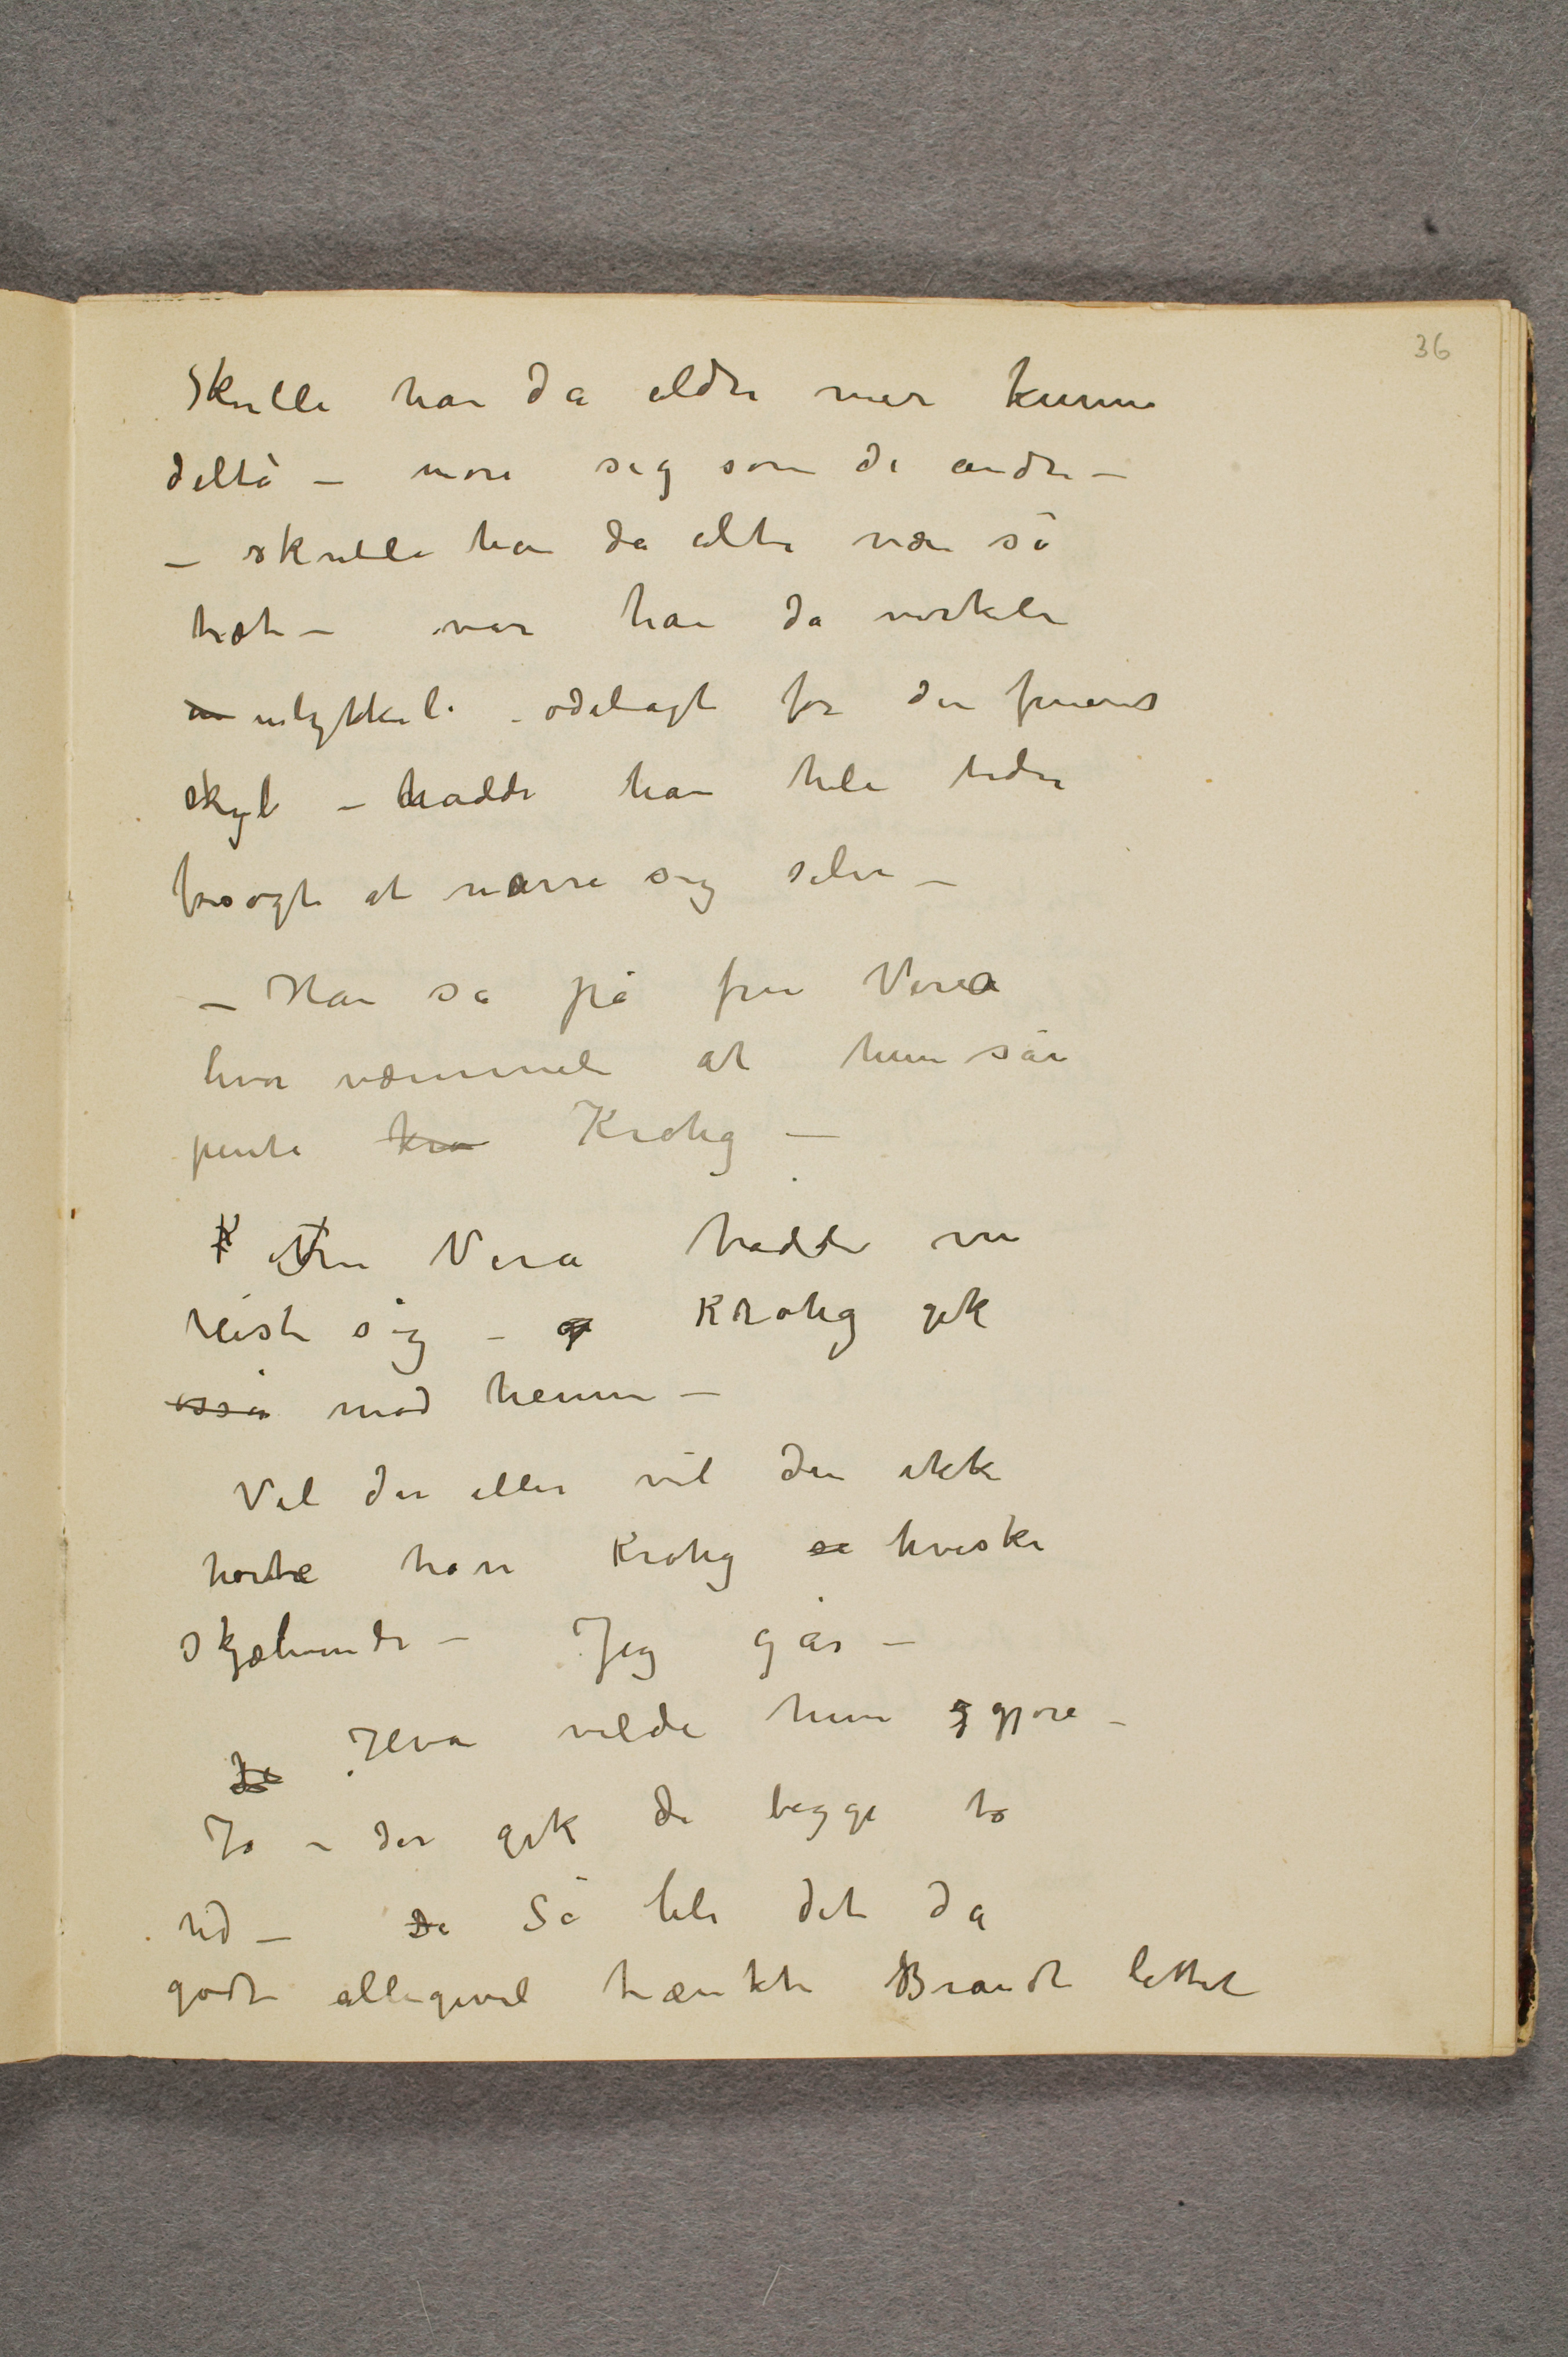 36
Skulle han da aldri mer kunne
deltå – more sig som de andre –
– skulle han da altid være så
træt – var han da virkeli
ulykkeli – ødelagt for den fruens
skyl – hadde han hele tiden
forsøgt at narre sig selv –
– Han så på fru Vera
hvor væmmeli at hun sån
pente kra Krohg –
F Fru Vera hadde nu
reist sig – g Krohg gik
osså mod henne –
Vil du eller vil du ikke
hørte han Krohg sa hviske
skjælvende – Jeg går –
Je Hva vilde hun g gjøre –
Jo – der gik de begge to
ud – De Så ble det da
godt alligevel tænkte Brandt lettet